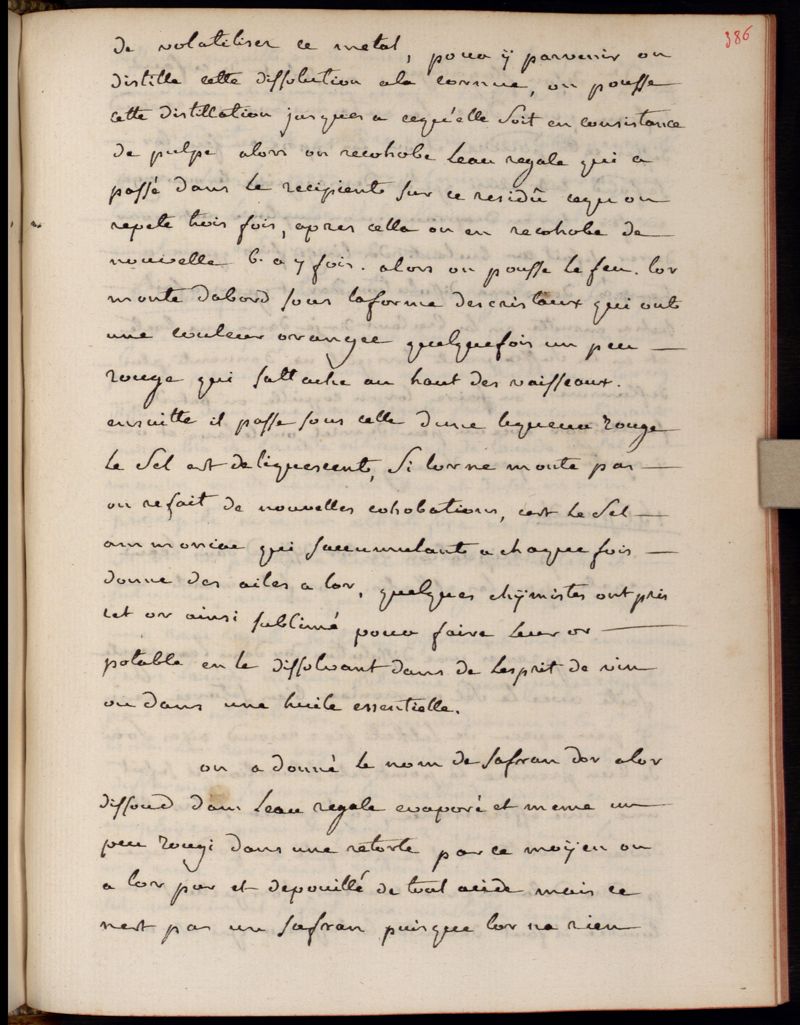 386
de volatiliser ce metal, pour ÿ parvenir on
distille cette dissolution ala cornue, on pousse
cette distillation jusques a cequ'elle soit en consistance
de pulpe alors on recohobe Leau regale qui a
passé dans Le recipient sur ce residû cequ on
repete trois fois, apres cella on en recohobe de
nouvelle 6 a 7 fois. alors on pousse Le feu. lor
monte dabord sous laforme descristaux qui ont
une couleur orangée quelquefois un peu —
rouge qui sattache au haut des vaisseaux.
ensuitte il passe sous celle dune liqueur rouge
Le Sel est deliquescent, Si lor ne monte pas —
on refait de nouvelles cohobations, cest Le Sel —
ammoniac qui saccumulant a chaque fois —
donne des ailes a lor, quelques chÿmistes ont pris
cet or ainsi sublimé pour faire Leur or —
potable en le dissolvant dans de Lesprit de vin
ou dans une huile essentielle.
on a donné Le nom de safran dor alor
dissoud dans Leau regale evaporé et meme un —
peu rougi dans une retorte par ce moÿen on
a lor pur et depouillé de tout acide mais ce
nest pas un safran puisque lor na rien